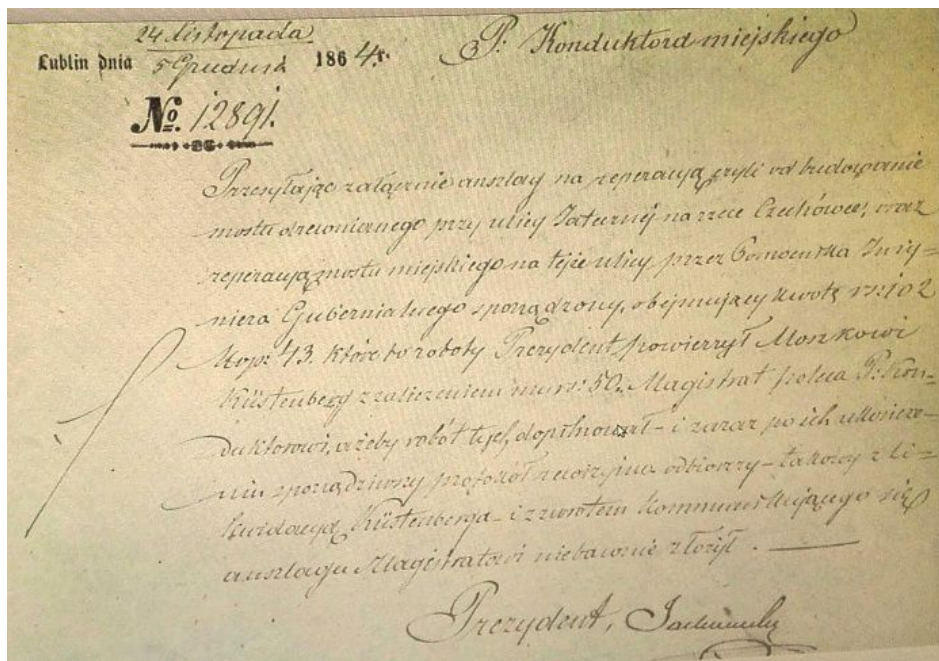 24 Listopada
Lublin dnia 5 Grudnia 1864 r.
P: Konduktora miejskiego
No. 12891.
Przesyłając załącznie anszlag na reperacyą czyli odbudowanie
mostu drewnianego przy ulicy Jatecznéj na rzece Czechówce, oraz
reperacyą mostu miejskiego na tejże ulicy przez Pomocnika Inży=
niera Gubernialnego sporządzony, obejmujący kwotę rs: 102
kop: 43. które to roboty Prezydent powierzył Moszkowi
Küstenberg z zaliczeniem mu rs: 50. Magistrat poleca P: Kon=
duktorowi, ażeby robót tych dopilnował – i zaraz po ich ukończe=
niu sporządziwszy protokół rewizyjno odbiorczy – takowy z li=
kwidacyą Küstenberga – i zwrotem kommunikującego się
anszlagu Magistratowi niebawnie złożył. —
Prezydent,